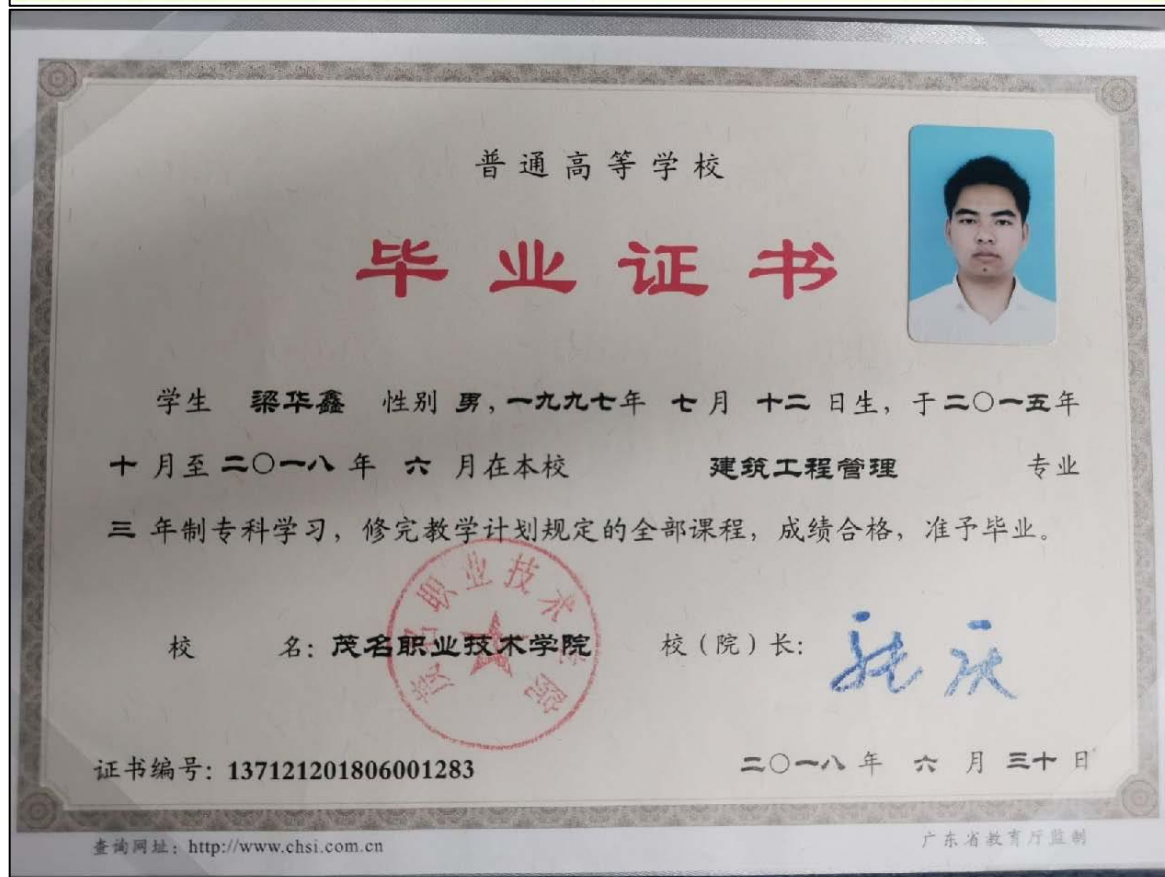 普通高等学校
毕业证书
学生 梁华鑫 性别 男，一九九七年 七月 十二 日生，于二〇一五年
十 月至 二〇一八 年 六 月在本校 建筑工程管理 专业
三 年制专科学习，修完教学计划规定的全部课程，成绩合格，准予毕业。
茂名职业技术学院
校 名：茂名职业技术学院 校（院）长：
证书编号：137121201806001283 二〇一八 年 六 月 三十 日
查询网址：http://www.chsi.com.cn 广东省教育厅监制